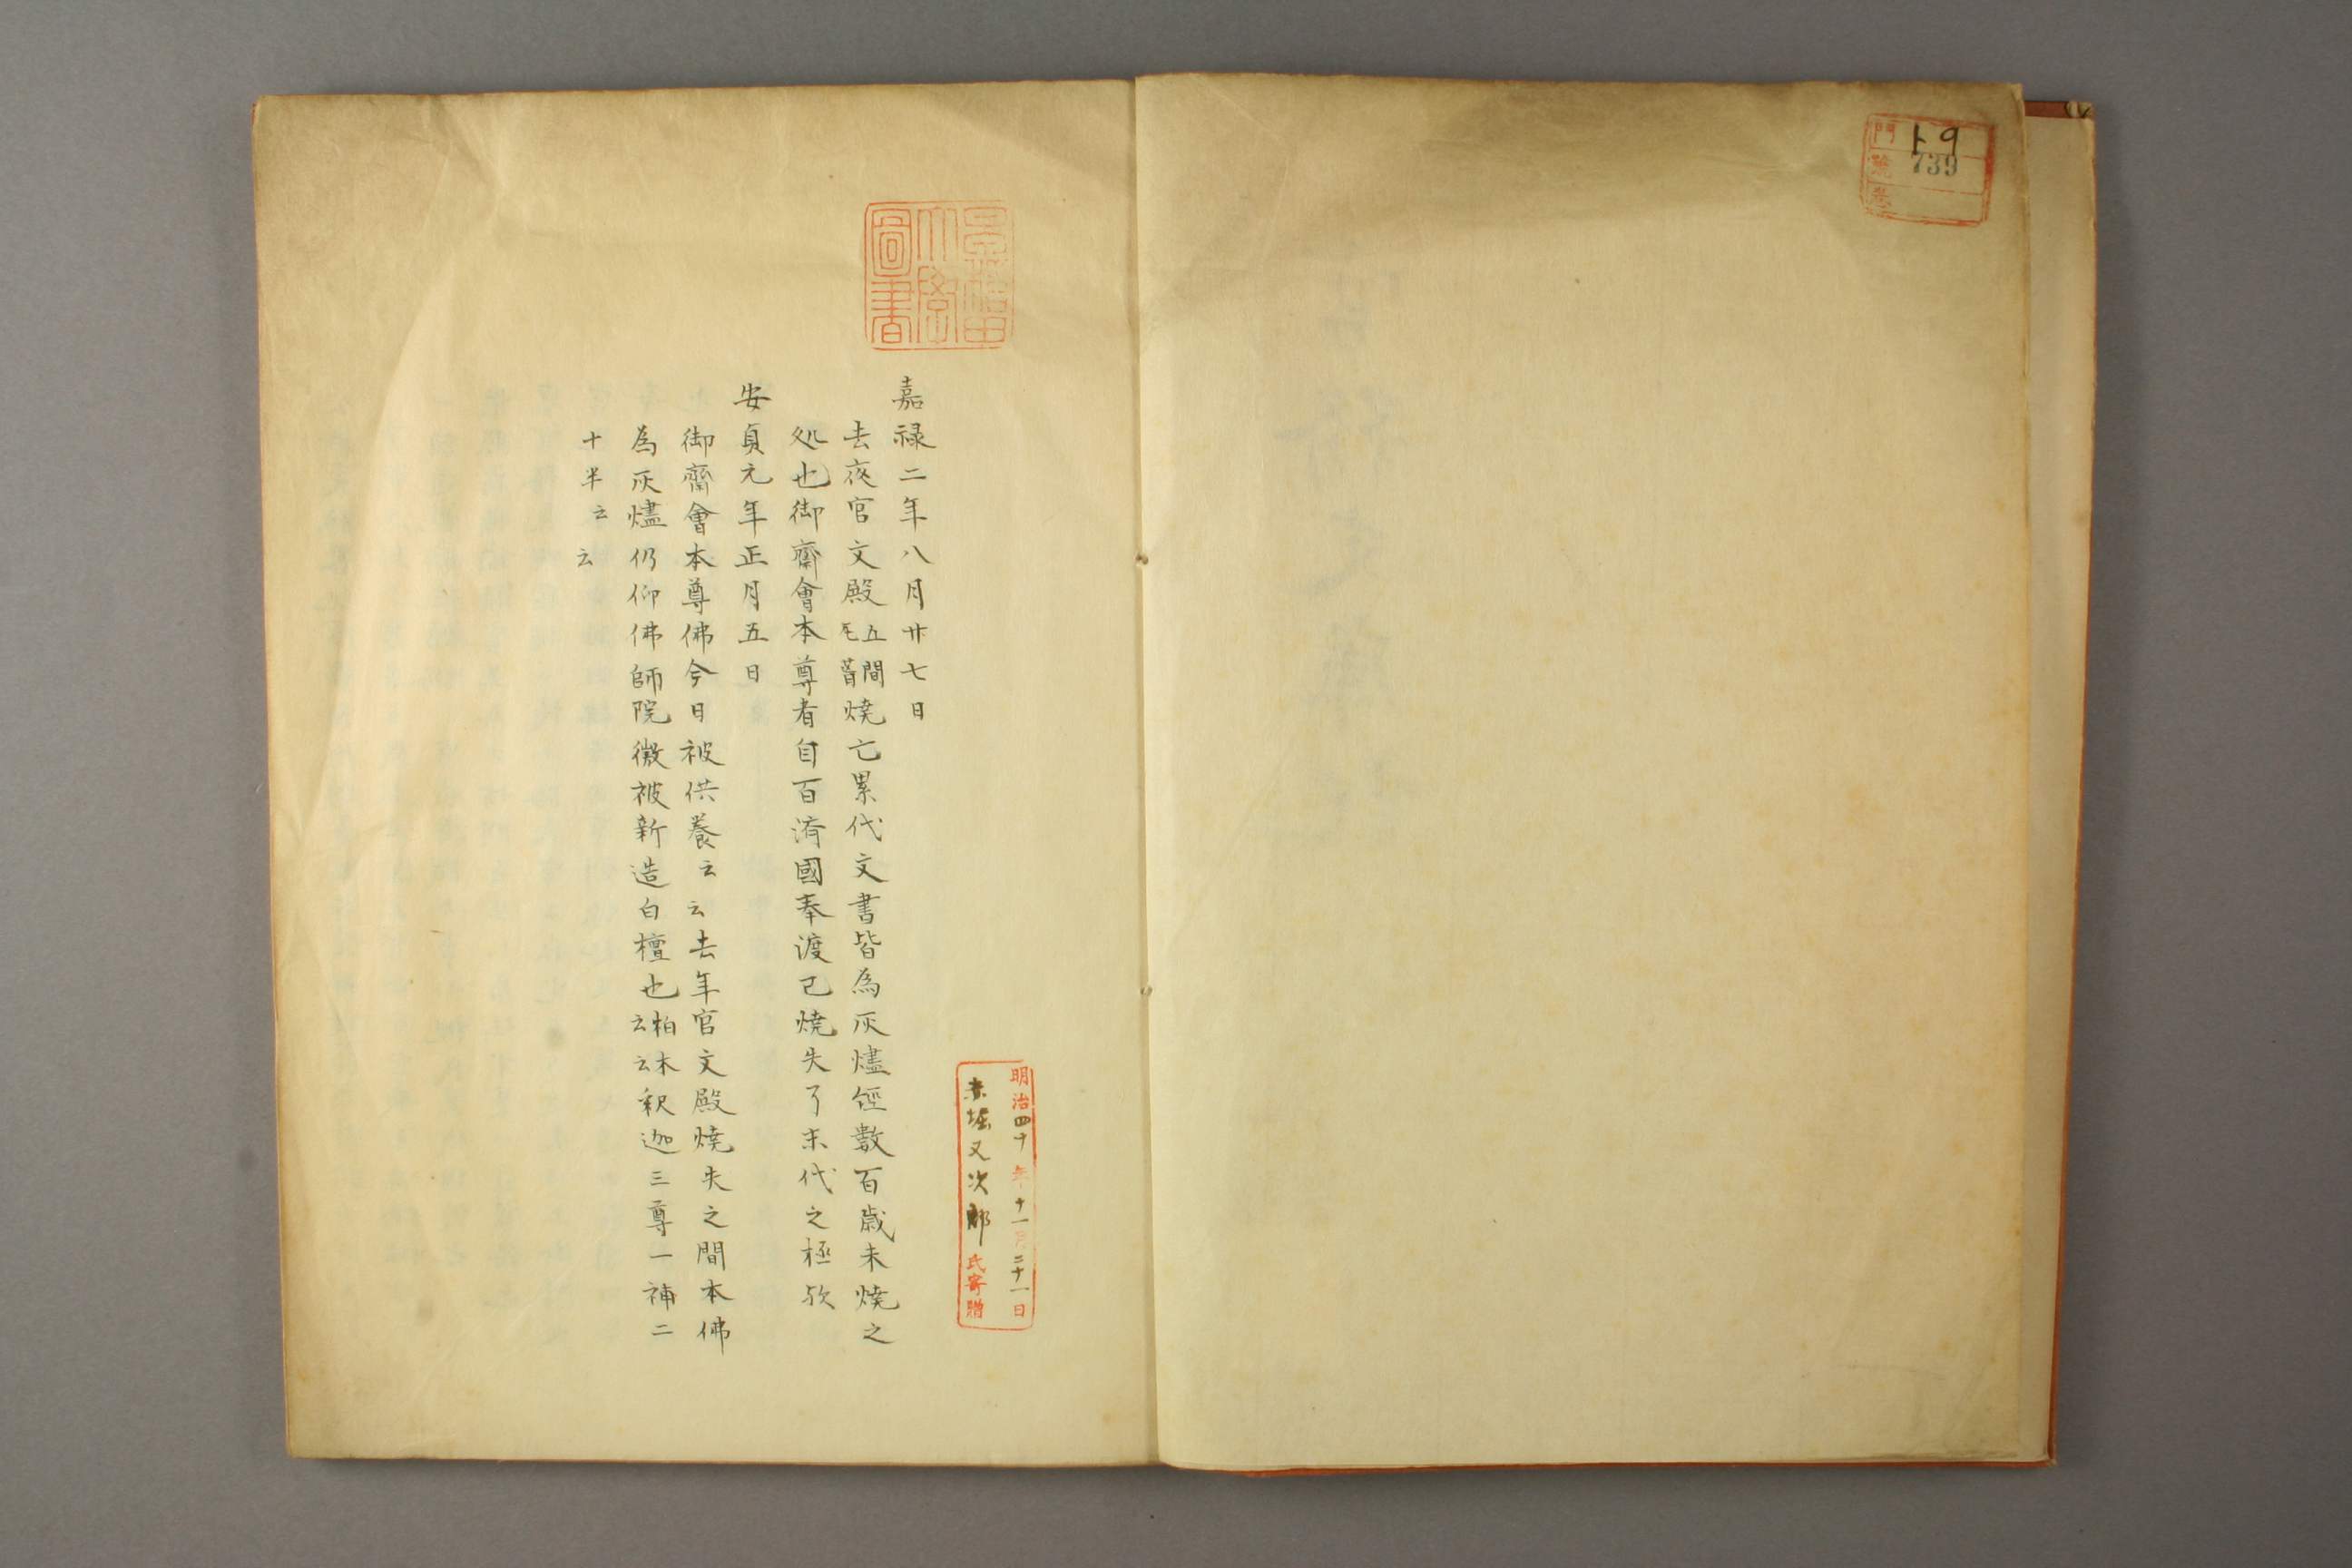 門 ト9
號 739
卷
早稲田大學圖書
明治四十年十一月二十一日
赤堀又次郎氏寄贈
嘉禄二年八月廿七日
去夜官文殿五間瓦葺燒亡累代文書皆為灰燼徑數百歳未燒之
処也御齋會本尊者自百済國奉渡已燒失了末代之極欤
安貞元年正月五日
御齋會本尊佛今日被供養云云去年官文殿燒失之間本佛
為灰燼仍仰佛師院微被新造白檀也柏木云云釈迦三尊一補二
十半云云